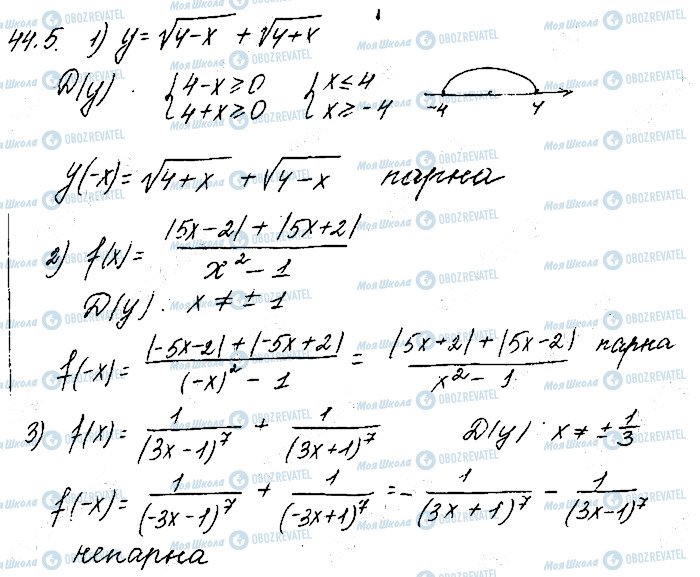 44.5. 1) y = √(4-x) + √(4+x)
D(y) . { 4-x ≥ 0 { x ≤ 4
{ 4+x ≥ 0 { x ≥ -4
-4 4
y(-x) = √(4+x) + √(4-x) парна
2) f(x) = (|5x-2| + |5x+2|) / (x² - 1)
D(y) . x ≠ ± 1
f(-x) = (|-5x-2| + |-5x+2|) / ((-x)² - 1) = (|5x+2| + |5x-2|) / (x² - 1) парна
3) f(x) = 1/(3x-1)⁷ + 1/(3x+1)⁷ D(y) . x ≠ ± 1/3
f(-x) = 1/(-3x-1)⁷ + 1/(-3x+1)⁷ = - 1/(3x+1)⁷ - 1/(3x-1)⁷
непарна
Моя Школа OBOZREVATEL